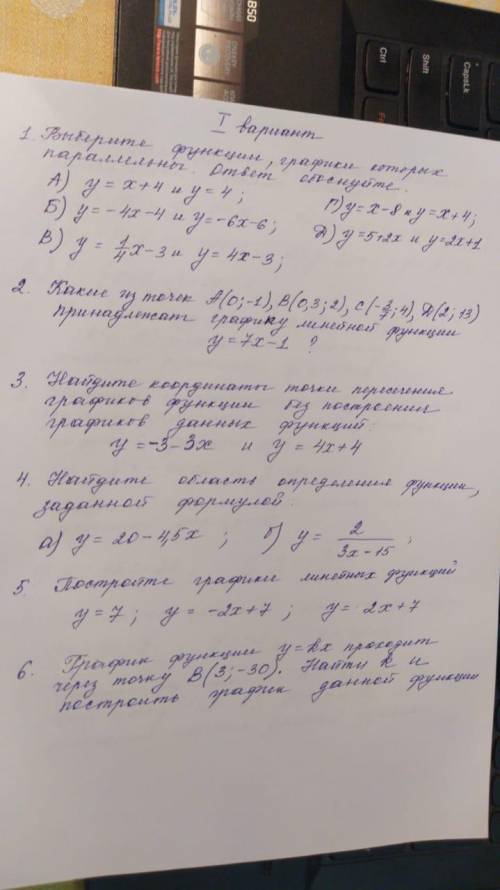 I вариант
1. Выберите функции, графики которых
параллельны. Ответ обоснуйте.
А) y = x+4 и y = 4;
Г) y = x-8 и y = x+4;
Б) y = -4x-4 и y = -6x-6;
Д) y = 5+2x и y = 2x+1
В) y = 1/4 x-3 и y = 4x-3;
2. Какие из точек A(0;-1), B(0,3;2), C(-3/7;4), Д(2;13)
принадлежат графику линейной функции
y = 7x-1 ?
3. Найдите координаты точки пересечения
графиков функции без построения
графиков данных функций:
y = -3-3x и y = 4x+4
4. Найдите область определения функции,
заданной формулой.
а) y = 20-4,5x ; б) y = 2/(3x-15) ;
5. Постройте графики линейных функций
y = 7 ; y = -2x+7 ; y = 2x+7
6. График функции y = kx проходит
через точку B(3;-30). Найти k и
построить график данной функции
B50
Ctrl
Shift
CapsLk
Fn